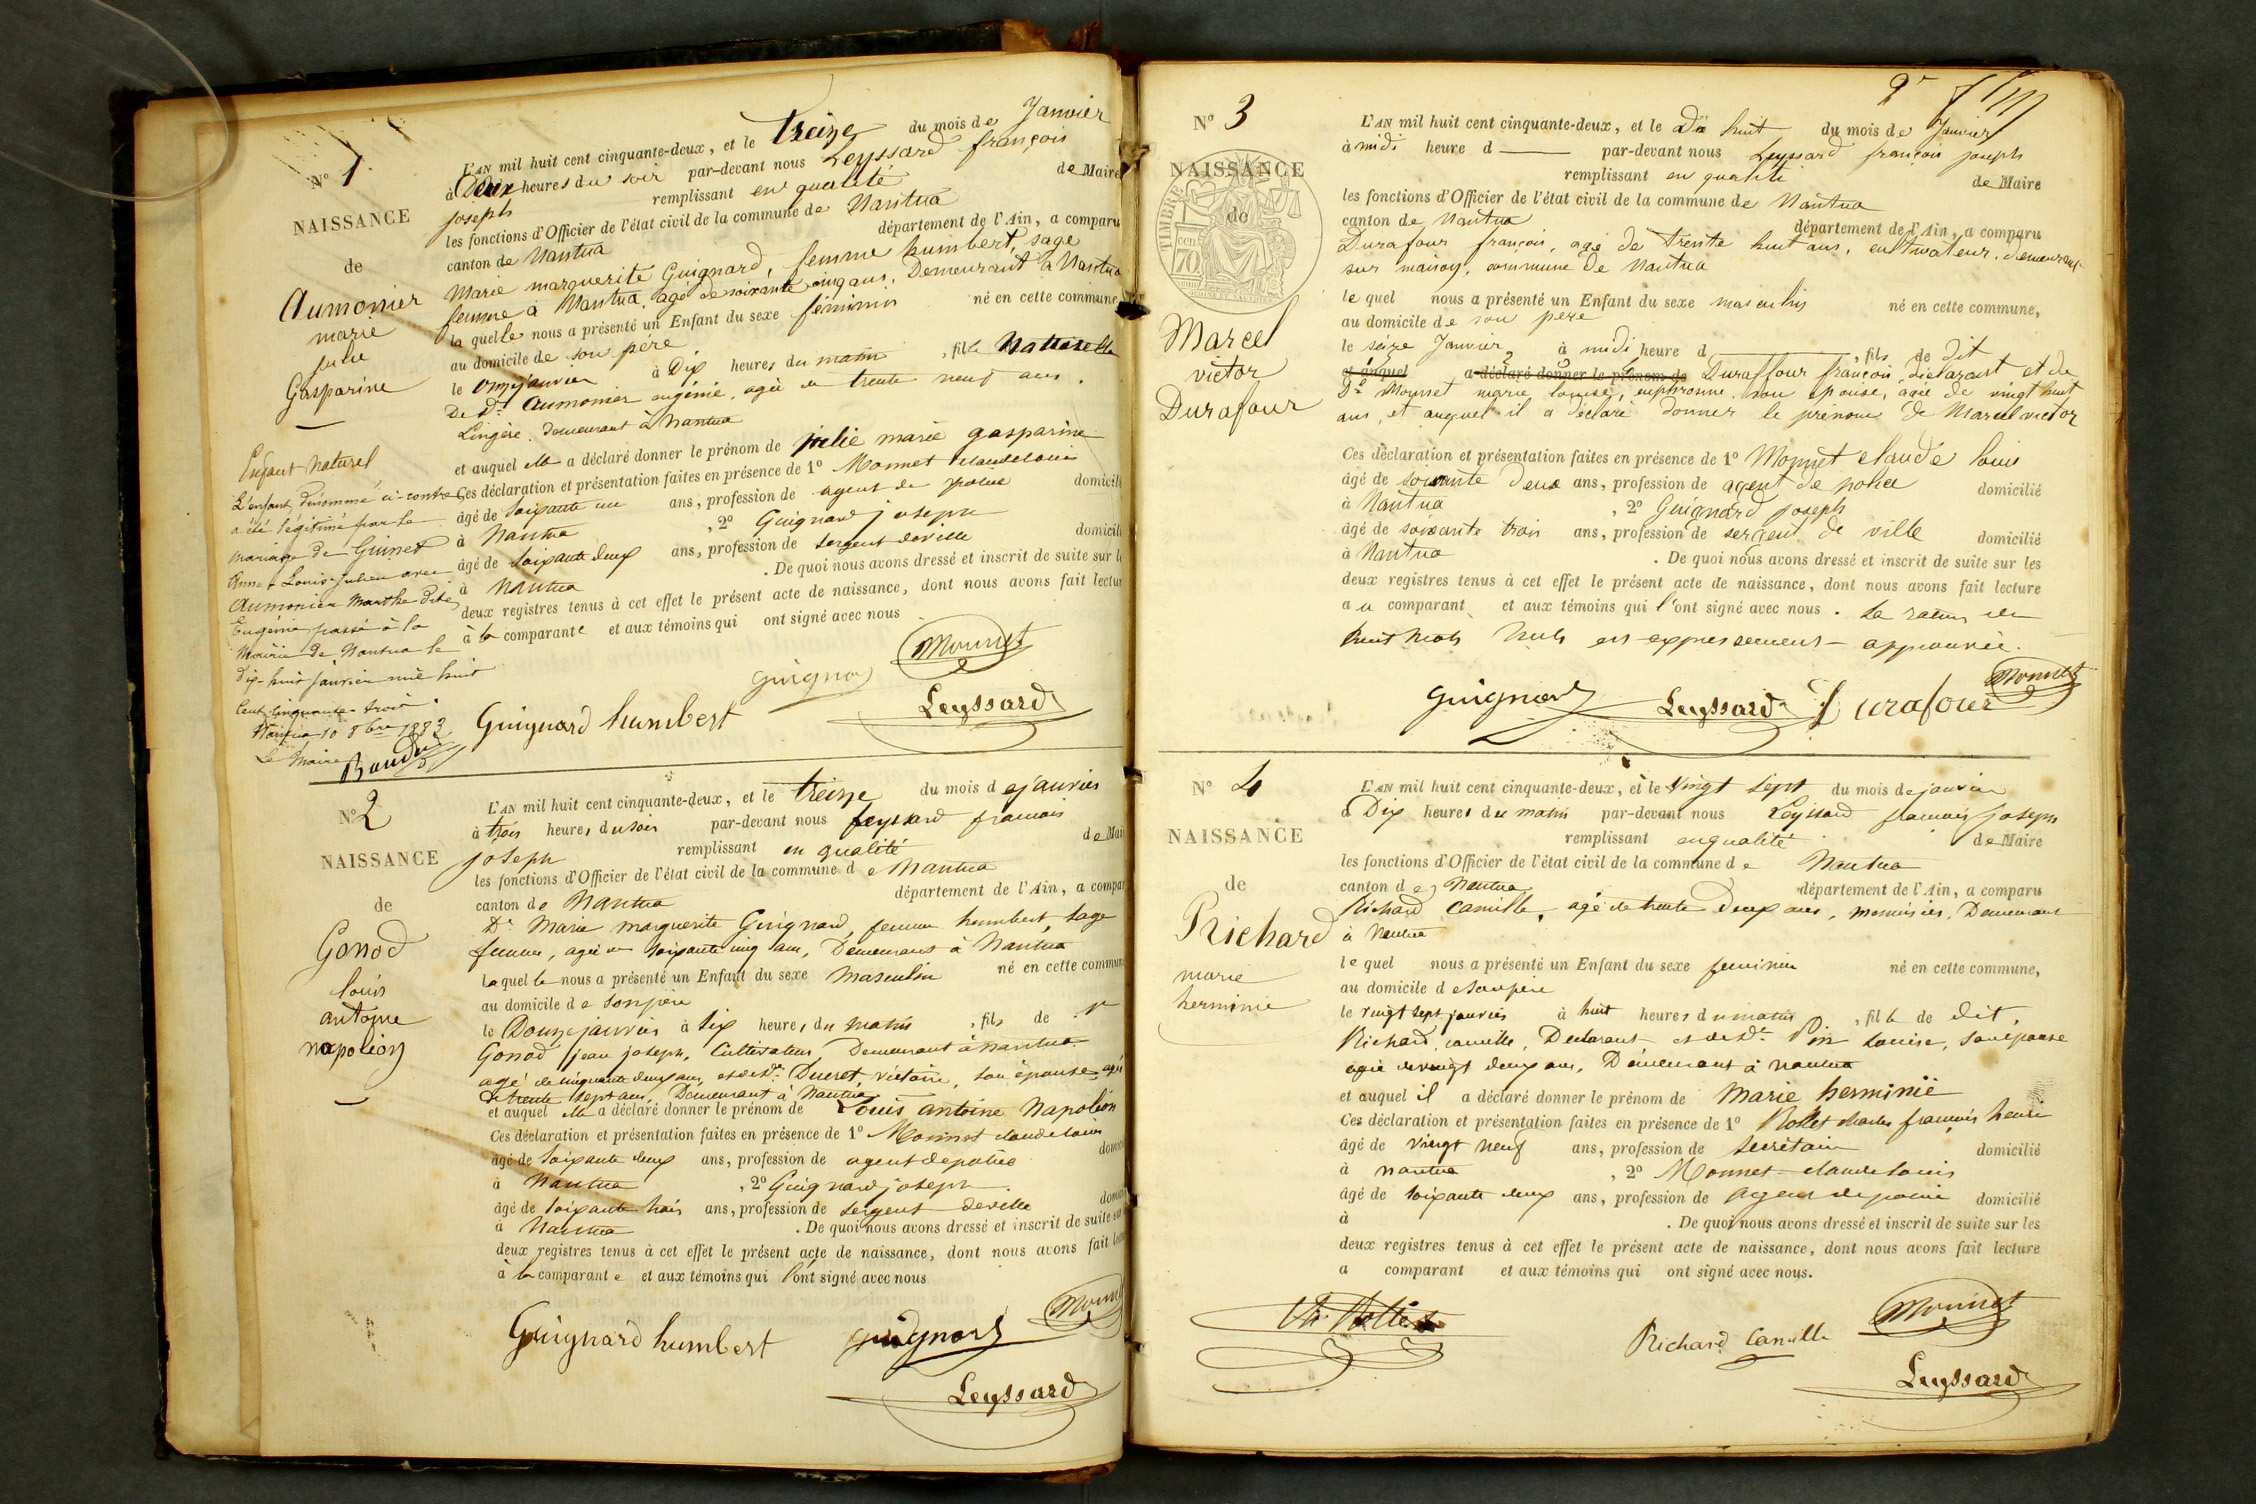 N° 1
NAISSANCE
de
Aumonier
marie
julie
Gasparine
Enfant naturel
L'enfant dénommé ci-contre
a été légitimé par le
mariage de Guinet
Anne-Louis-Julien avec
Aumonier Marthe dite
Eugénie passé à la
Mairie de Nantua le
dix-huit janvier mil huit
cent cinquante-trois
Nantua 10 8bre 1883
Le Maire
L'AN mil huit cent cinquante-deux, et le treize du mois de Janvier
à Deux heures du soir par-devant nous Leyssard françois
joseph remplissant en qualité de Maire
les fonctions d'Officier de l'état civil de la commune de Nantua
canton de Nantua département de l'Ain, a comparu
Marie marguerite Guignard, femme humbert, sage
femme à Nantua agé de soixante cinq ans, Demeurant à Nantua
la quelle nous a présenté un Enfant du sexe féminin né en cette commune
au domicile de son père
le onze janvier à Dix heures du matin, fille Naturelle
De de Aumonier eugénie, agée de trente neuf ans.
Lingère. Demeurant à Nantua
et auquel elle a déclaré donner le prénom de julie marie gasparine
Ces déclaration et présentation faites en présence de 1° Monnet claude louis
âgé de soixante un ans, profession de agent de police domicilié
à Nantua, 2° Guignard joseph
âgé de soixante deux ans, profession de sergent deville domicilié
à Nantua. De quoi nous avons dressé et inscrit de suite sur les
deux registres tenus à cet effet le présent acte de naissance, dont nous avons fait lecture
à la comparante et aux témoins qui ont signé avec nous
Monnet
Guignard
Guignard humbert
Leyssard
N° 2
NAISSANCE
de
Gonod
louis
antoine
napoléon
L'AN mil huit cent cinquante-deux, et le treize du mois de janvier
à trois heures du soir par-devant nous Leyssard francois
joseph remplissant en qualité de Maire
les fonctions d'Officier de l'état civil de la commune de Nantua
canton de Nantua département de l'Ain, a comparu
De Marie marguerite Guignard, femme humbert, sage
femme, agée de soixante cinq ans, Demeurant à Nantua
laquelle nous a présenté un Enfant du sexe masculin né en cette commune
au domicile de son père
le Douze janvier à six heures du matin, fils de
Gonod jean joseph, Cultivateur, Demeurant à nantua
agé de cinquante deux ans, et de de Ducret, victoire, son épouse agée
de trente sept ans, Demeurant à Nantua
et auquel elle a déclaré donner le prénom de Louis antoine Napoléon
Ces déclaration et présentation faites en présence de 1° Monnet claude louis
âgé de soixante deux ans, profession de agent de police
à Nantua, 2° Guignard joseph
âgé de soixante trois ans, profession de sergent deville
à Nantua. De quoi nous avons dressé et inscrit de suite sur
deux registres tenus à cet effet le présent acte de naissance, dont nous avons fait lecture
à la comparante et aux témoins qui l'ont signé avec nous
Guignard humbert
Guignard
Monnet
Leyssard
N° 3
NAISSANCE
de
TIMBRE
70
Marcel
victor
Durafour
L'AN mil huit cent cinquante-deux, et le Dix huit du mois de Janvier
à midi heure d par-devant nous Leyssard françois joseph
remplissant en qualité de Maire
les fonctions d'Officier de l'état civil de la commune de Nantua
canton de Nantua département de l'Ain, a comparu
Durafour françois, agé de trente huit ans, cultivateur, demeurant
sur maison, commune de Nantua
le quel nous a présenté un Enfant du sexe masculin né en cette commune,
au domicile de son père
le seize Janvier à midi heure d, fils de dit
et auquel a déclaré donner le prénom de Duraffour françois, déclarant et de
de Monnet marie louise, euphrosine, son épouse, agée de vingt huit
ans, et auquel il a déclaré donner le prénom de Marcel victor
Ces déclaration et présentation faites en présence de 1° Monnet claude louis
âgé de soixante deux ans, profession de agent de police domicilié
à Nantua, 2° Guignard joseph
âgé de soixante trois ans, profession de sergent de ville domicilié
à Nantua. De quoi nous avons dressé et inscrit de suite sur les
deux registres tenus à cet effet le présent acte de naissance, dont nous avons fait lecture
au comparant et aux témoins qui l'ont signé avec nous. La rature de
huit mots nuls est expressément approuvée.
Guignard
Leyssard
Durafour
Monnet
N° 4
NAISSANCE
de
Richard
marie
herminie
L'AN mil huit cent cinquante-deux, et le vingt sept du mois de janvier
à Dix heures du matin par-devant nous Leyssard francois joseph
remplissant en qualité de Maire
les fonctions d'Officier de l'état civil de la commune de Nantua
canton de Nantua département de l'Ain, a comparu
Richard Camille, agé de trente deux ans, menuisier, Demeurant
à Nantua
le quel nous a présenté un Enfant du sexe feminin né en cette commune,
au domicile de son père
le vingt sept janvier à huit heures du matin, fille de dit,
Richard, camille, Déclarant et de de Pin Louise, son épouse
agée de vingt deux ans, Demeurant à nantua
et auquel il a déclaré donner le prénom de Marie herminie
Ces déclaration et présentation faites en présence de 1° Rollet charles françois henri
âgé de vingt neuf ans, profession de secrétaire domicilié
à nantua, 2° Monnet claude louis
âgé de soixante deux ans, profession de agent de police domicilié
à. De quoi nous avons dressé et inscrit de suite sur les
deux registres tenus à cet effet le présent acte de naissance, dont nous avons fait lecture
a comparant et aux témoins qui ont signé avec nous.
Richard Camille
Monnet
Leyssard